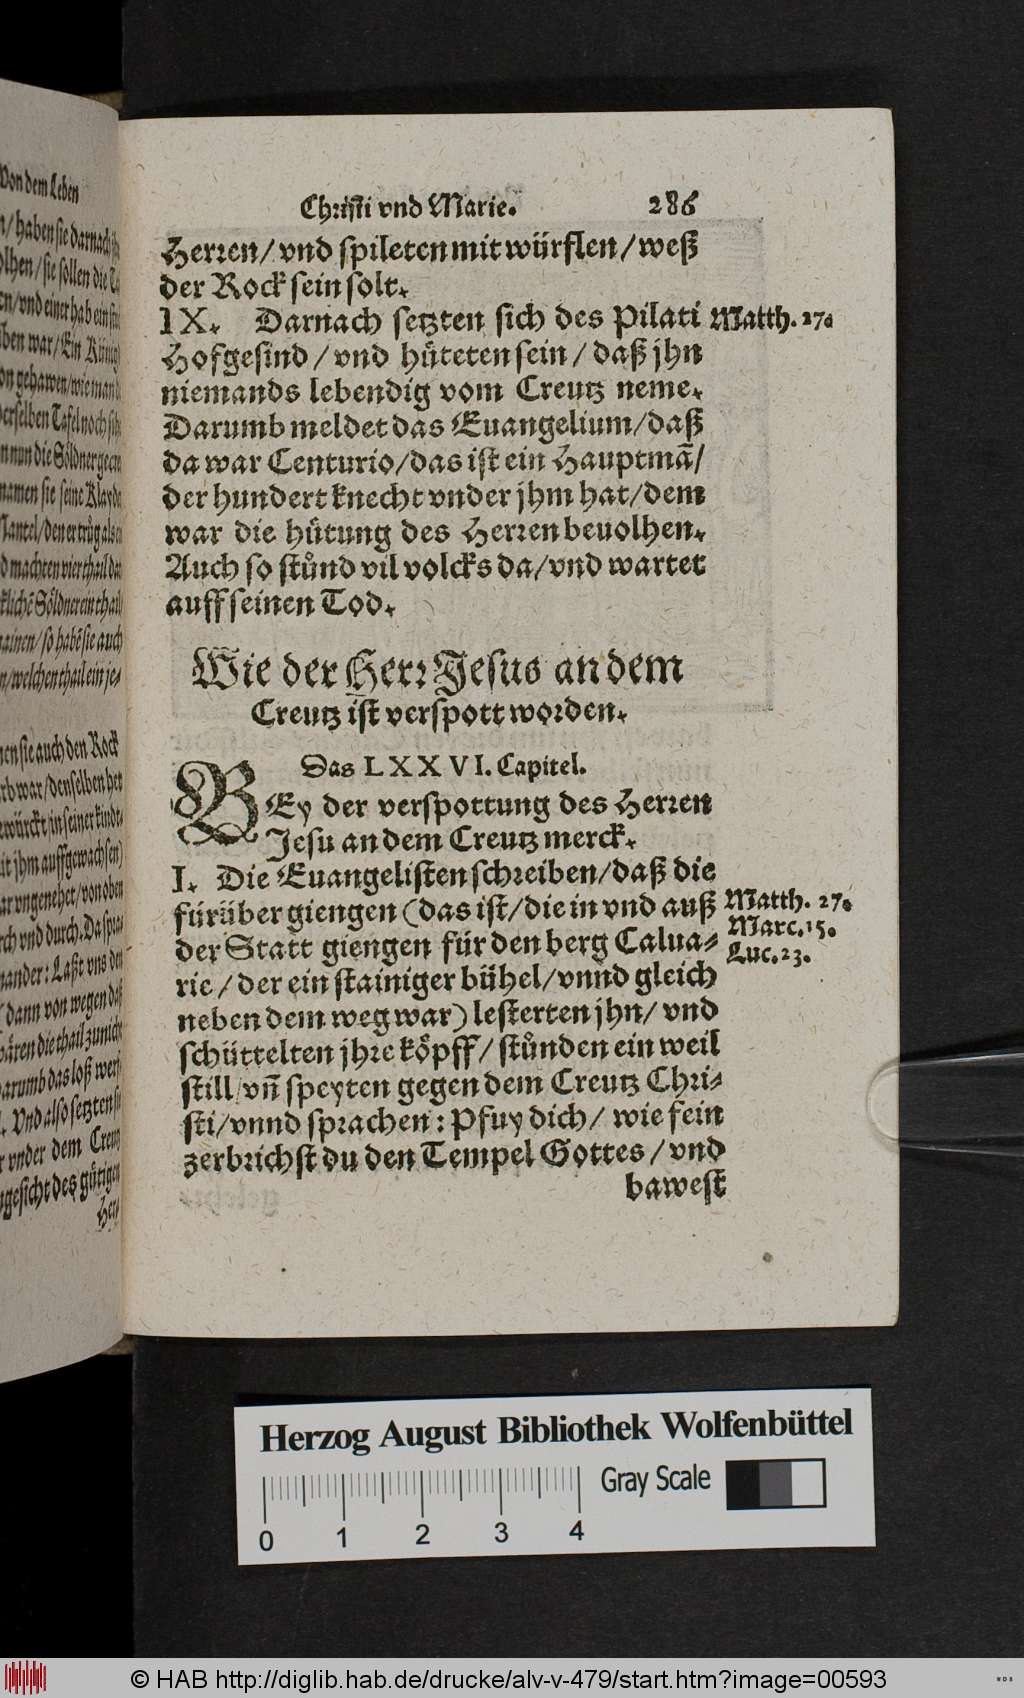 Von dem Leben
haben sie darnach
sie sollen die
vnd einer hab ein
ben war/ Ein Künig
gehawen/ wie man
derselben Tafel noch
nun die Söldner
namen sie seine Klayd
Mantel/ den er trůg als
machten vier thail
Söldner ein thail
so habē sie auch
welchen thail ein je-
sie auch den Rock
war/ denselben het
würckt in seiner kindt-
jhm auffgewachsen)
vngenehet/ von oben
vnd durch. Da
Laßt vns den
dann von wegen daß
die thail zunicht
Darumb das loß
Vnd also setzten
vnder dem Creutz
des gütigen
Her-
Christi vnd Marie. 286
Herren/ vnd spileten mit würflen/ weß
der Rock sein solt.
IX. Darnach setzten sich des Pilati
Hofgesind/ vnd hůteten sein/ daß jhn
niemands lebendig vom Creutz neme.
Darumb meldet das Euangelium/ daß
da war Centurio/ das ist ein Hauptmā/
der hundert knecht vnder jhm hat/ dem
war die hůtung des Herren beuolhen.
Auch so stůnd vil volcks da/ vnd wartet
auff seinen Tod.
Matth. 27.
Wie der Herr Jesus an dem
Creutz ist verspott worden.
Das LXXVI. Capitel.
BEy der verspottung des Herren
Jesu an dem Creutz merck.
I. Die Euangelisten schreiben/ daß die
fürüber giengen (das ist/ die in vnd auß
der Statt giengen für den berg Calua-
rie/ der ein stainiger bühel/ vnnd gleich
neben dem weg war) lesterten jhn/ vnd
schüttelten jhre köpff/ stůnden ein weil
still/ vñ speyten gegen dem Creutz Chri-
sti/ vnnd sprachen: Pfuy dich/ wie fein
zerbrichst du den Tempel Gottes/ vnd
bawest
Matth. 27.
Marc. 15.
Luc. 23.
Herzog August Bibliothek Wolfenbüttel
Gray Scale
0 1 2 3 4
© HAB http://diglib.hab.de/drucke/alv-v-479/start.htm?image=00593